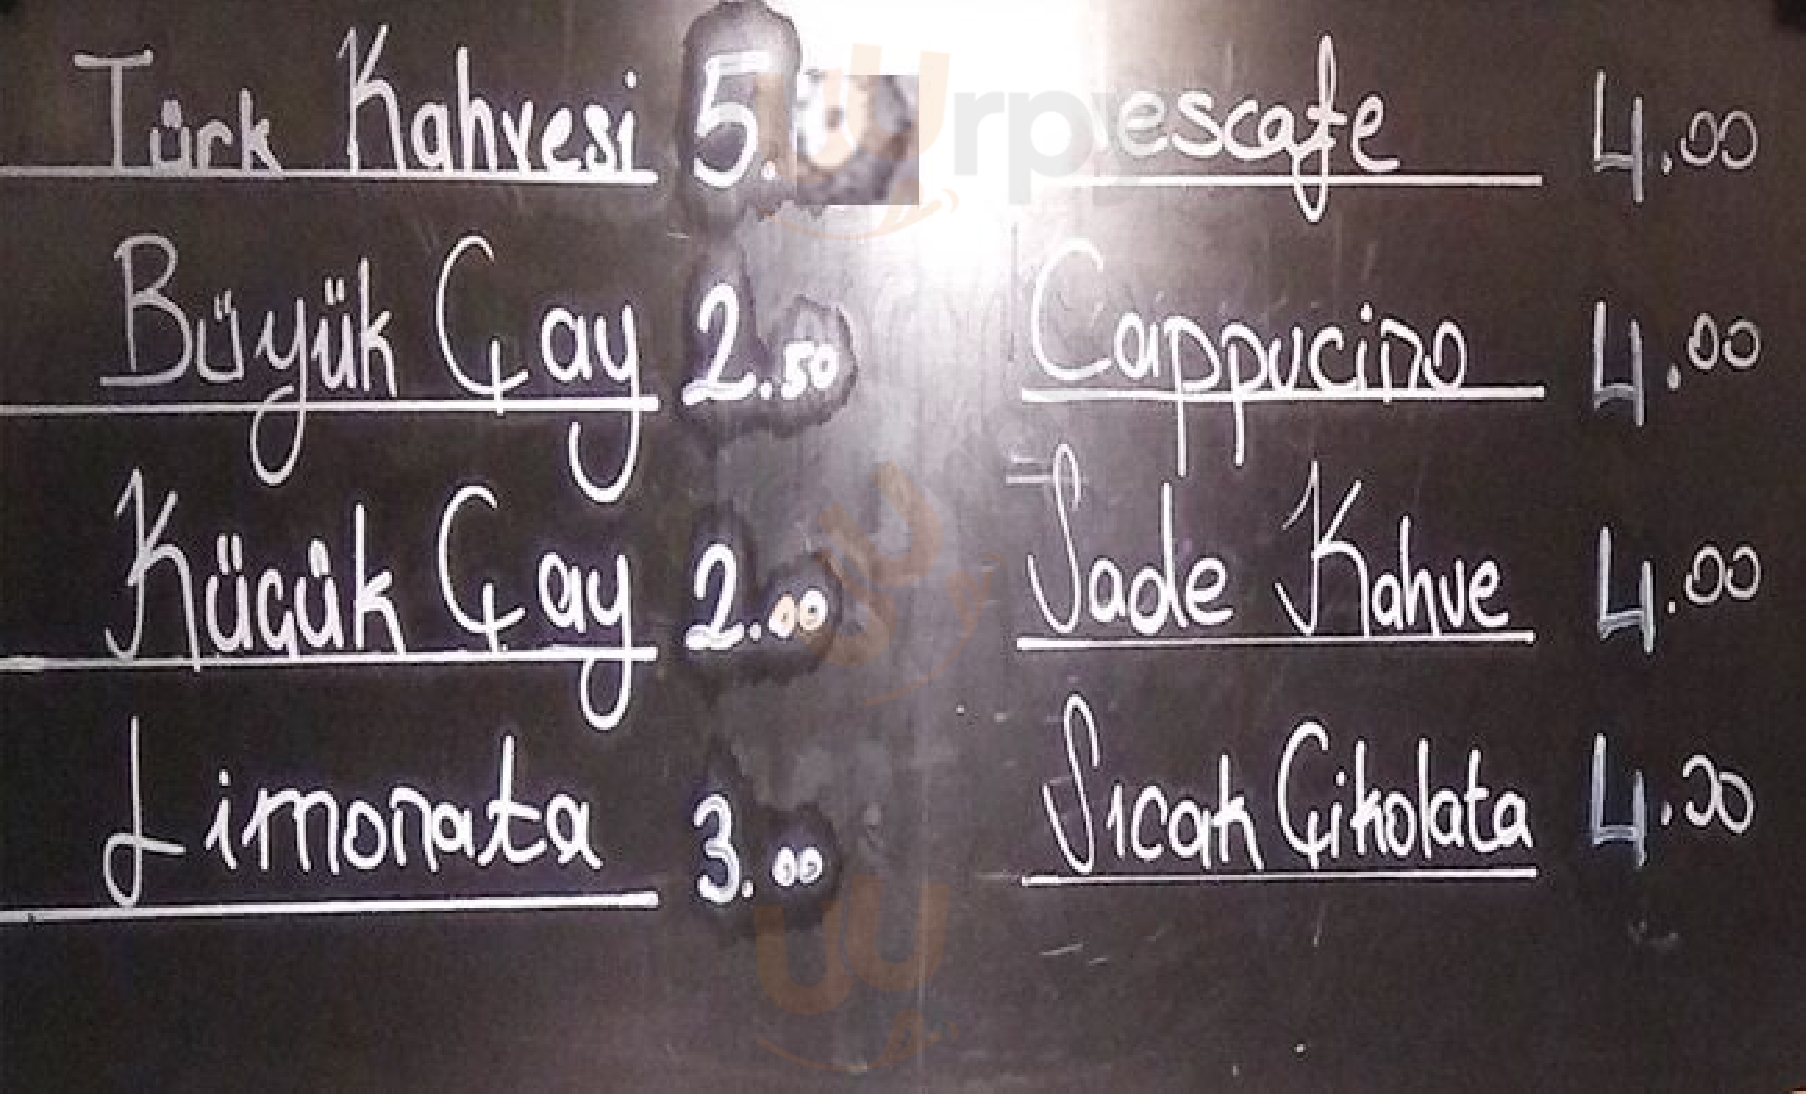 Türk Kahvesi 5.
Büyük Çay 2.50
Küçük Çay 2.00
Limonata 3.00
escafe 4.00
Cappucino 4.00
Sade Kahve 4.00
Sıcak Çikolata 4.00